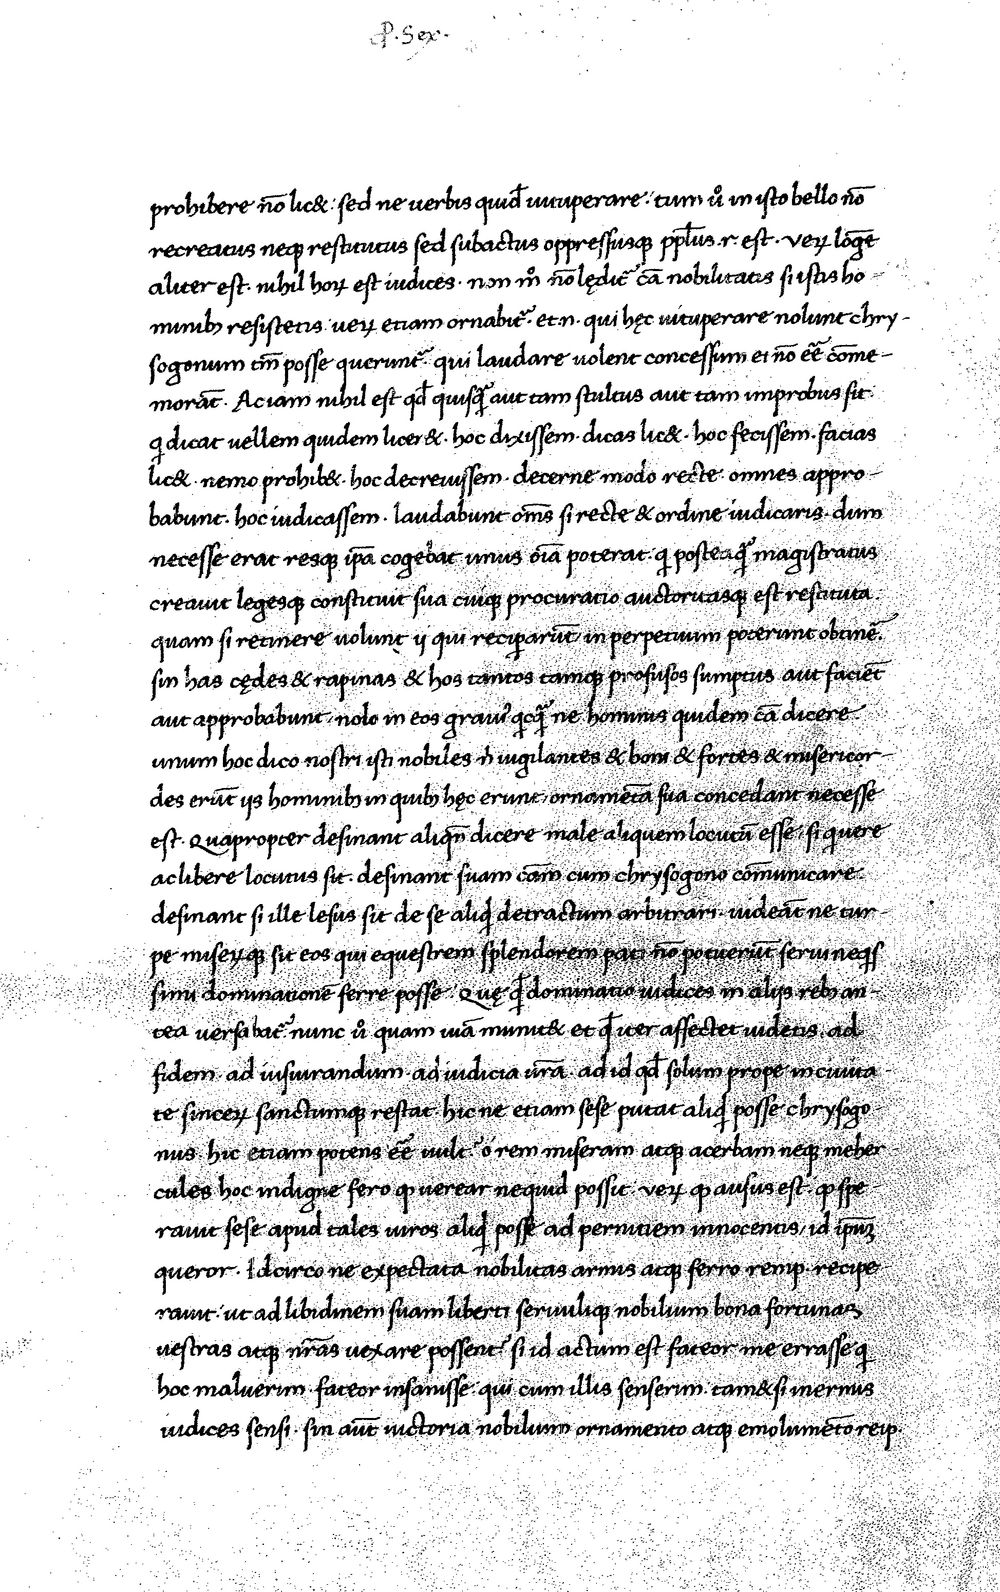 P. Sex.
prohibere nō lic&: sed ne uerbis quid̄ uituperare: tum ů in isto bello nō
recreatus neqꝫ restitutus sed subactus oppressusqꝫ pp̄lus .r. est. Veꝝ lōge
aliter est. nihil hoꝝ est iudices. non m̊ nō lędit᷑ cā nobilitatis si istis ho-
minibꝫ resistetis ueꝝ etiam ornabit᷑. et .n. qui hęc uituperare nolunt chry-
sogonum tm̄ posse querunt᷑ qui laudare uolent concessum ei nō eē cōme-
morāt. Ac iam nihil est qd̄ quisq̄ aut tam stultus aut tam improbus sit
q dicat uellem quidem licer&. hoc dixissem. dicas lic&. hoc fecissem. facias
lic&. nemo prohib&. hoc decreuissem. decerne modo recte. omnes appro-
babunt. hoc iudicassem. laudabunt om̄s si recte & ordine iudicaris. dum
necesse erat resqꝫ ip̄a cogebat unus oīa poterat. q posteaq̄ magistratus
creauit legesqꝫ constituit sua cuiqꝫ procuratio auctoritasqꝫ est restituta.
quam si retinere uolunt ij qui reciꝑarūt in perpetuum poterunt obtinē.
sin has cędes & rapinas & hos tantos tamqꝫ profusos sumptus aut faciēt
aut approbabunt. nolo in eos grauiꝰ qcq̄ ne hominis quidem cā dicere
unum hoc dico nostri isti nobiles ń uigilantes & boni & fortes & misericor-
des erūt ijs hominibꝫ in quibꝫ hęc erunt, ornamēta sua concedant necesse
est. Quapropter desinant aliqn̄ dicere male aliquem locutū esse, si q uere
ac libere locutus sit. desinant suam cām cum chrysogono cōmunicare.
desinant si ille lesus sit de se aliqd detractum arbitrari. uideāt ne tur-
pe miseꝝqꝫ sit eos qui equestrem splendorem pati nō potuerūt serui neqs
simi dominationē ferre posse. Quę q̄d dominatio iudices in alijs rebꝫ an-
tea versabat᷑ nunc ů quam uiā munit& et q̄d iter affectet uidetis. ad
fidem. ad iusiurandum. ad iudicia ūra. ad id qd̄ solum prope in ciuita-
te sinceꝝ sanctumqꝫ restat. hic ne etiam sese putat aliqd posse chrysogo-
nus. hic etiam potens eē uult. o rem miseram atqꝫ acerbam neqꝫ meher-
cules hoc indigne fero qꝫ uerear nequid possit. veꝝ qꝫ ausus est. qꝫ spe-
rauit sese apud tales uiros aliqd posse ad pernitiem innocentis, id ip̄m
queror. Idcirco ne expectata nobilitas armis atqꝫ ferro remp. recipe-
rauit. ut ad libidinem suam liberti seruuliqꝫ nobilium bona fortunas
uestras atqꝫ nr̄as uexare possent᷑ si id actum est fateor me errasse q
hoc maluerim. fateor insanisse. qui cum illis senserim. tam&si inermis
iudices sensi. sin aūt uictoria nobilium ornamento atqꝫ emolumēto reip.